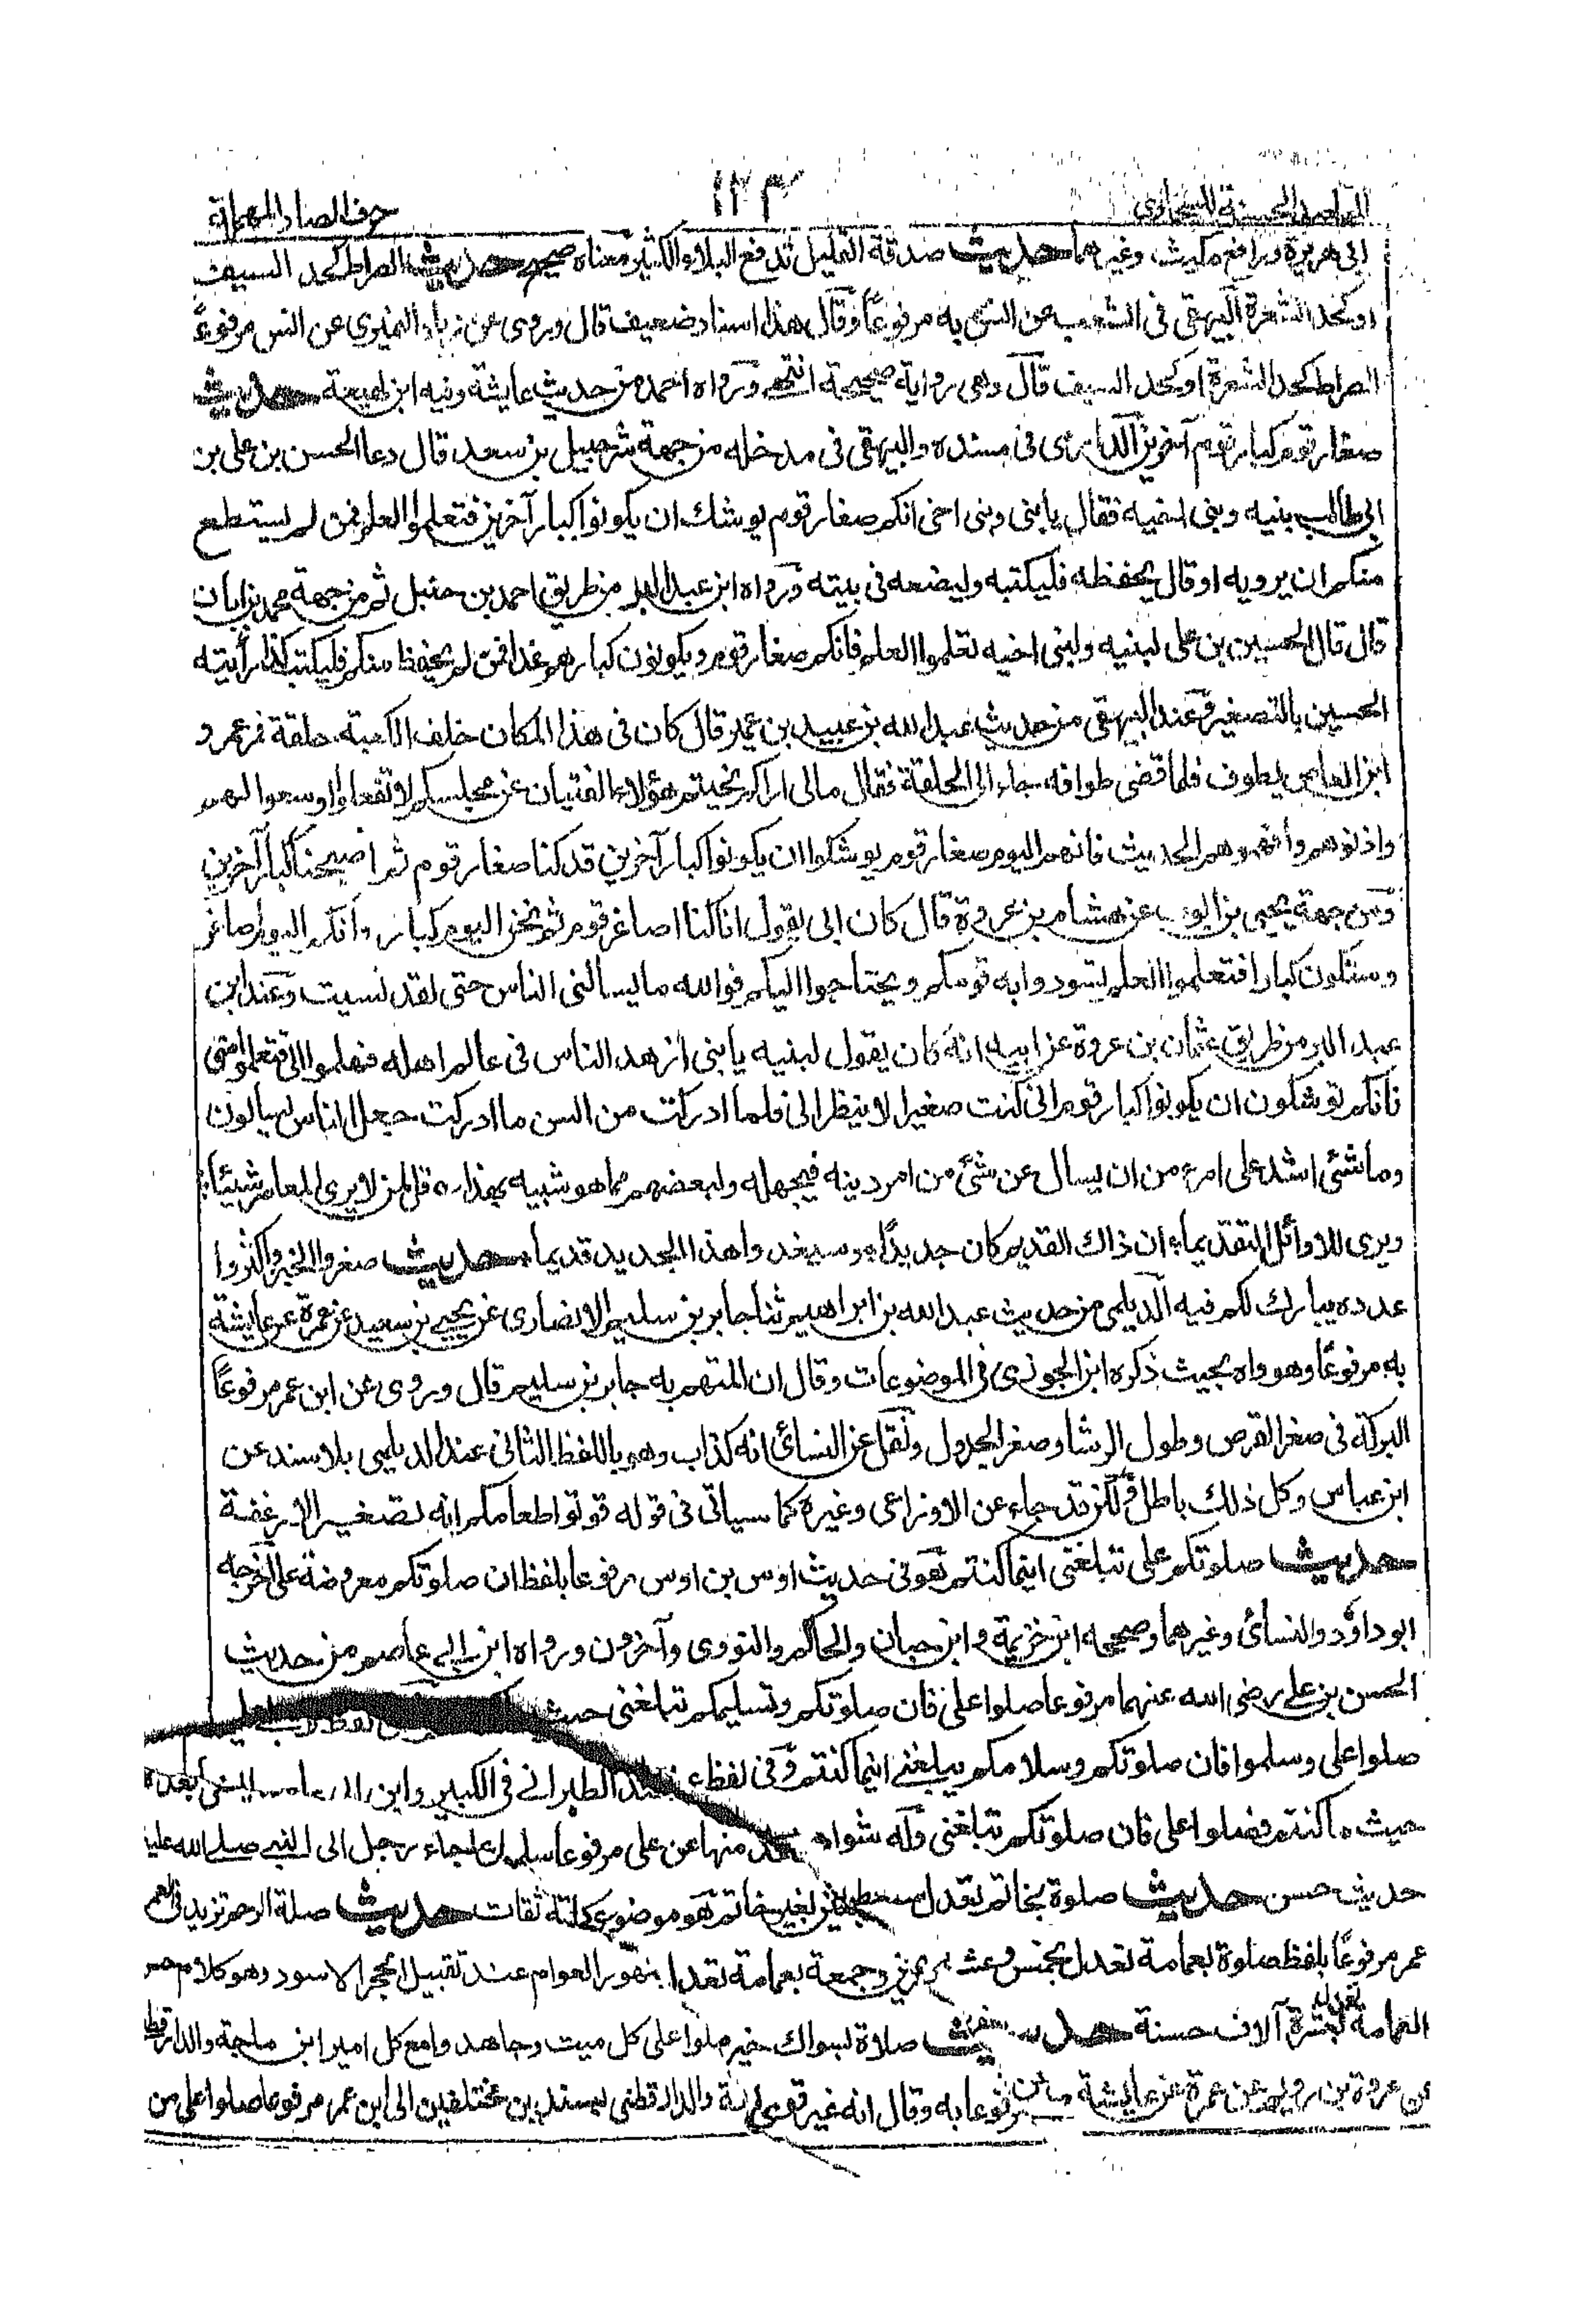 المقاصد الحسنة للسخاوى
١٢٣
حرف الصاد المهملة
ابى هريرة ورافع بن مكيث وغيرهما حديث صدقة القليل تدفع البلاء الكثير معناه صحيح حديث الصراط كحد السيف
اوكحد الشعرة البيهقى فى الشعب عن انس به مرفوعًا وقال هذا اسناد ضعيف قال وروى عن زياد النميري عن انس مرفوعًا
الصراط كحد الشعرة اوكحد السيف قال وهى رواية صحيحة انتهى ورواه احمد من حديث عايشة وفيه ابن لهيعة حديث
صغار قوم كبار قوم آخرين الدارمى فى مسنده والبيهقى فى مدخله من جهة شرحبيل بن سعد قال دعا الحسن بن على بن
ابى طالب بنيه وبنى اخيه فقال يا بنى وبنى اخى انكم صغار قوم يوشك ان يكونوا كبار آخرين فتعلموا العلم فمن لم يستطع
منكم ان يرويه اوقال يحفظه فليكتبه وليضعه فى بيته ورواه ابن عبد البر من طريق احمد بن حنبل ثم من جهة محمد بن ابان
قال قال الحسين بن على لبنيه ولبنى اخيه تعلموا العلم فانكم صغار قوم ويكونون كبارهم غدا فمن لم يحفظ منكم فليكتب كذا رأيته
الحسين بالتصغير وعند البيهقى من حديث عبد الله بن عبيد بن عمير قال كان فى هذا المكان خلف الكعبة حلقة فمر عمرو
ابن العاص يطوف فلما قضى طوافه جاء الى الحلقة فقال مالى اراكم نحيتم هؤلاء الفتيان عن مجلسكم لا تفعلوا اوسعوا لهم
واذنوهم وافهموهم الحديث فانهم اليوم صغار قوم يوشكوا ان يكونوا كبار آخرين قد كنا صغار قوم ثم اصبحنا كبار آخرين
ومن جهة يحيى بن ايوب عن هشام بن عروة قال كان ابى يقول انا كنا اصاغر قوم ثم نحن اليوم كبار وانكم اليوم اصاغر
وستكون كبارا فتعلموا العلم تسودوا به قومكم ويحتاجوا اليكم فوالله ما يسالنى الناس حتى لقد نسيت وعند ابن
عبد البر من طريق عثمان بن عروة عن ابيه انه كان يقول لبنيه يا بنى ازهد الناس فى عالم اهله فهلموا الى فتعلموا منى
فانكم توشكون ان يكونوا كبار قوم انى كنت صغيرا لا ينظر الى فلما ادركت من السن ما ادركت جعل الناس يسالون
وما شئى اشد على امرء من ان يسال عن شئ من امر دينه فيجهله ولبعضهم مما هو شبيه بهذا ره قل لمن لا يرى المعاصر شيئاء
ويرى للاوائل التقديماء ان ذاك القديم كان جديدًا ره وسيغدوا هذا الجديد قديماء حديث صغروا الخبز واكثروا
عدده يبارك لكم فيه الديلمى من حديث عبد الله بن ابراهيم ثنا جابر بن سليم الانصارى عن يحيى بن سعيد عن عمرة عن عايشة
به مرفوعًا وهو واه بحيث ذكره ابن الجوزى فى الموضوعات وقال ان المتهم به جابر بن سليم قال وروى عن ابن عمر مرفوعًا
البركة فى صغر القرص وطول الرشا وصغر الجدول ونقل عن النسائ انه كذاب وهو باللفظ الثانى عند الديلمى بلا سند عن
ابن عباس وكل ذلك باطل ولكن قد جاء عن الاوزاعى وغيره كما سياتى فى قوله قوتوا طعامكم انه تصغير الارغفة
حديث صلوتكم على تبلغنى اينما كنتم هو فى حديث اوس بن اوس مرفوعا بلفظ ان صلوتكم معروضة على اخرجه
ابو داؤد والنسائ وغيرهما وصححه ابن خزيمة وابن حبان والحاكم والنووى وآخرون ورواه ابن ابى عاصم من حديث
الحسن بن على رضى الله عنهما مرفوعا صلوا على فان صلوتكم وتسليمكم تبلغنى حيث
صلوا على وسلموا فان صلوتكم وسلامكم يبلغنى اينما كنتم وفى لفظ عند الطبرانے فى الكبير وابن
حيث ما كنتم فصلوا على فان صلوتكم تبلغنى وله شواهد منها عن على مرفوعا جاء رجل الى النبى صلے الله عليه
حديث حسن حديث صلوة بخاتم تعدل سبعين بغير خاتم هو موضوع ثقات حديث صلة الرحم تزيد فى العمر
عمر مرفوعًا بلفظ صلوة بعمامة تعدل بخمس وعشرين وجمعة بعمامة تعدل العوام عند تقبيل الحجر الاسود وهو كلام
العمامة تعدل بعشرة آلاف حسنة حديث صلاة بسواك خير صلوا على كل ميت وجاهدوا مع كل امير ابن ماجة والدارقطنى
عن عروة بن عن عمرة عن عايشة مرفوعا به وقال انه غير قوى والدارقطنى بسندين مختلفين الى ابن عمر مرفوعا صلوا على من